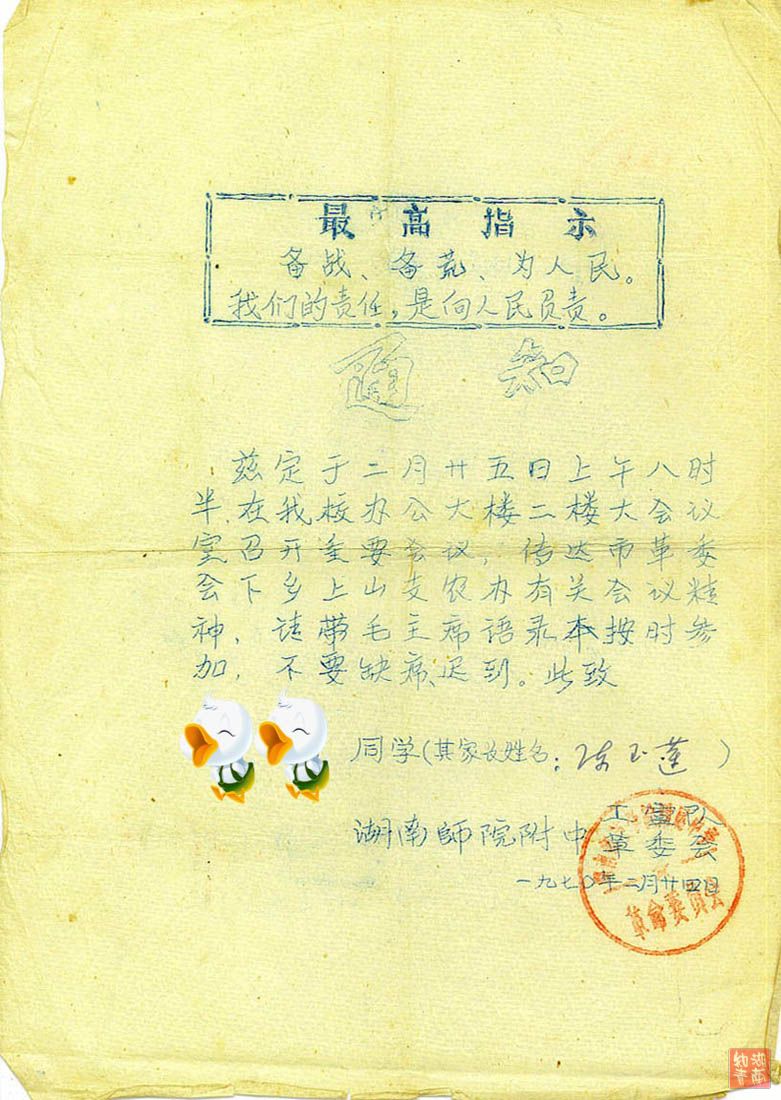 最高指示
备战、备荒、为人民。
我们的责任,是向人民负责。
通知
兹定于二月廿五日上午八时
半,在我校办公大楼二楼大会议
室召开重要会议,传达市革委
会下乡上山支农办有关会议精
神,请带毛主席语录本按时参
加,不要缺席、迟到。此致
同学(其家长姓名:陈玉莲)
工宣队
湖南師院附中革委会
一九七〇年二月廿四日
革命委员会
湖南知青